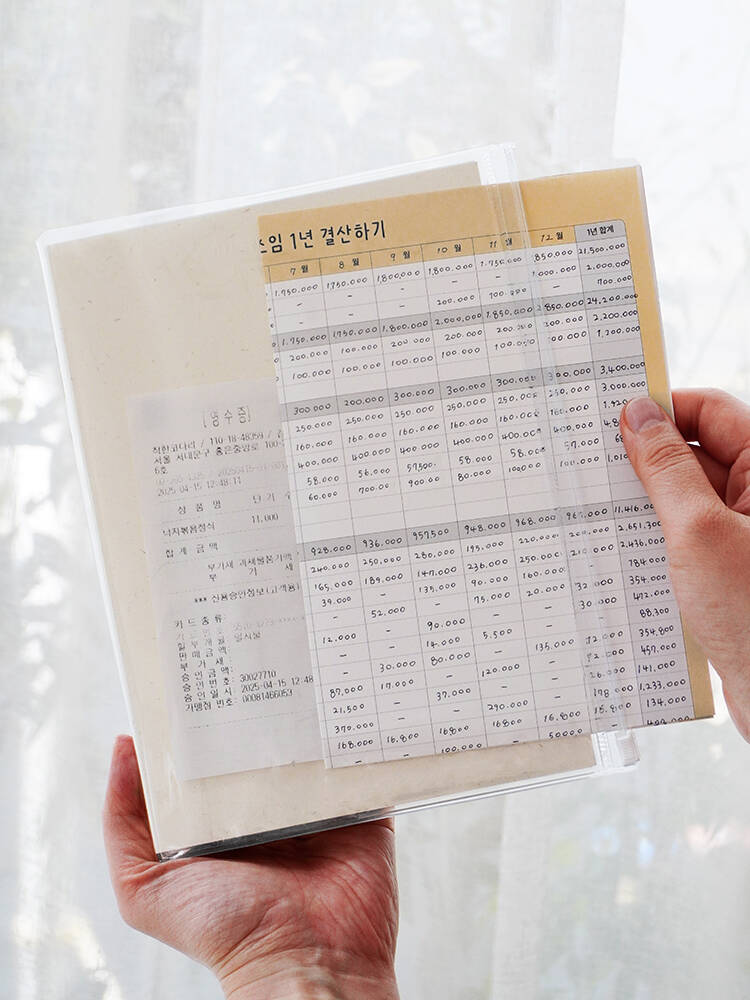 1년 결산하기
7 월 8 월 9 월 10 월 11 월 12 월 1년 합계
1.750.000 1.750.000 1,800,000 1,800.000 1.750.000 850.000 21,500.000
- - - - - 1.000.000 2.000.000
- - - 200.000 100.000 - 700.000
1.750.000 1750.000 1.800.000 2.000.000 1.850.000 2.850.000 24,200.000
200.000 100.000 200.000 200.000 200.000 200.000 2.200.000
100.000 100.000 100.000 100.000 100.000 100.000 1,200.000
300.000 200.000 300.000 300.000 300.000 300.000 3,400.000
250.000 250.000 250.000 250.000 250.000 250.000 3,000.000
160.000 160.000 160.000 160.000 160.000 160.000
400.000 400.000 400.000 400.000 400.000 400.000
58.000 56.000 57,500. 58.000 58.000 57.000
60.000 700.00 900.00 80.000 100.000 100.000
928.000 936.000 957.500 948.000 968.000 11.416.000
240.000 250.000 280.000 195.000 220.000 2,651.300
165.000 189.000 147.000 236.000 250.000 2,436.000
39.000 - 135.000 90.000 160.000 784.000
- 52.000 - 75.000 20.000 354.000
12.000 - 90.000 - - 412.000
- - 14.000 5.500 - 88,300
- 30.000 80.000 - 135.000 354,800
87,000 17.000 - 120.000 - 457.000
21,500 - 37.000 - - 141.000
370.000 - - 270.000 - 1,233.000
168.000 16.800 16.800 16.800 16.800 16.800 134.000
- - 100.000 - 50000
[영수증]
착한코다리 / 110-18-48359 /
서울 서대문구 홍은중앙로 100-
6호
2025-04-15 12:48:11
상 품 명 단 가
낙지볶음정식 11,000
합 계 금 액
부가세 과세물품가액
부 가 세
*** 신용승인정보(고객용)
카 드 종 류:
할 부 개 월: 일시불
판 매 금 액:
부 가 세:
승 인 금 액:
승 인 번 호: 30027710
승 인 일 시: 2025-04-15 12:48
가맹점 번호: 00081466053